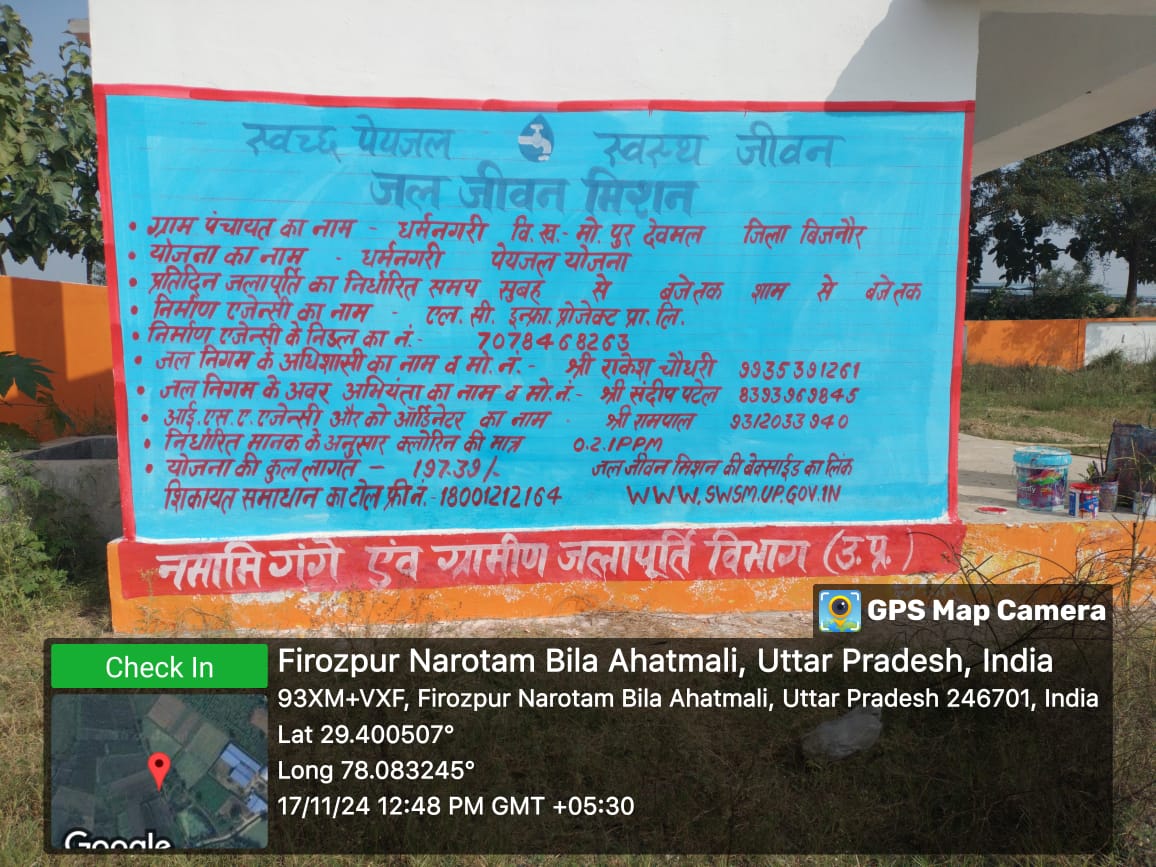 स्वच्छ पेयजल स्वस्थ जीवन
जल जीवन मिशन
• ग्राम पंचायत का नाम - धर्मनगरी वि.ख.- मो. पुर देवमल जिला बिजनौर
• योजना का नाम - धर्मनगरी पेयजल योजना
• प्रतिदिन जलापूर्ति का निर्धारित समय सुबह से बजे तक शाम से बजे तक
• निर्माण एजेन्सी का नाम - एल. सी. इन्फ्रा. प्रोजेक्ट प्रा. लि.
• निर्माण एजेन्सी के निडल का नं.- 7078468263
• जल निगम के अधिशासी का नाम व मो. नं.- श्री राकेश चौधरी 9935391261
• जल निगम के अवर अभियंता का नाम व मो. नं.- श्री संदीप पटेल 8393969845
• आई. एस. ए. एजेन्सी और को ऑर्डिनेटर का नाम - श्री रामपाल 9312033940
• निर्धारित मानक के अनुसार क्लोरिन की मात्र 0.2.1PPM
• योजना की कुल लागत - 197.39/- जल जीवन मिशन की बेक्साईड का लिंक
शिकायत समाधान का टोल फ्री नं.- 18001212164 WWW.SWSM.UP.GOV.IN
नमामि गंगे एंव ग्रामीण जलापूर्ति विभाग (उ. प्र.)
GPS Map Camera
Check In
Firozpur Narotam Bila Ahatmali, Uttar Pradesh, India
93XM+VXF, Firozpur Narotam Bila Ahatmali, Uttar Pradesh 246701, India
Lat 29.400507°
Long 78.083245°
17/11/24 12:48 PM GMT +05:30
Google